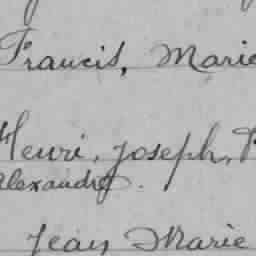 Francis, Marie
Henri, Joseph,
Alexandre.
Jean Marie